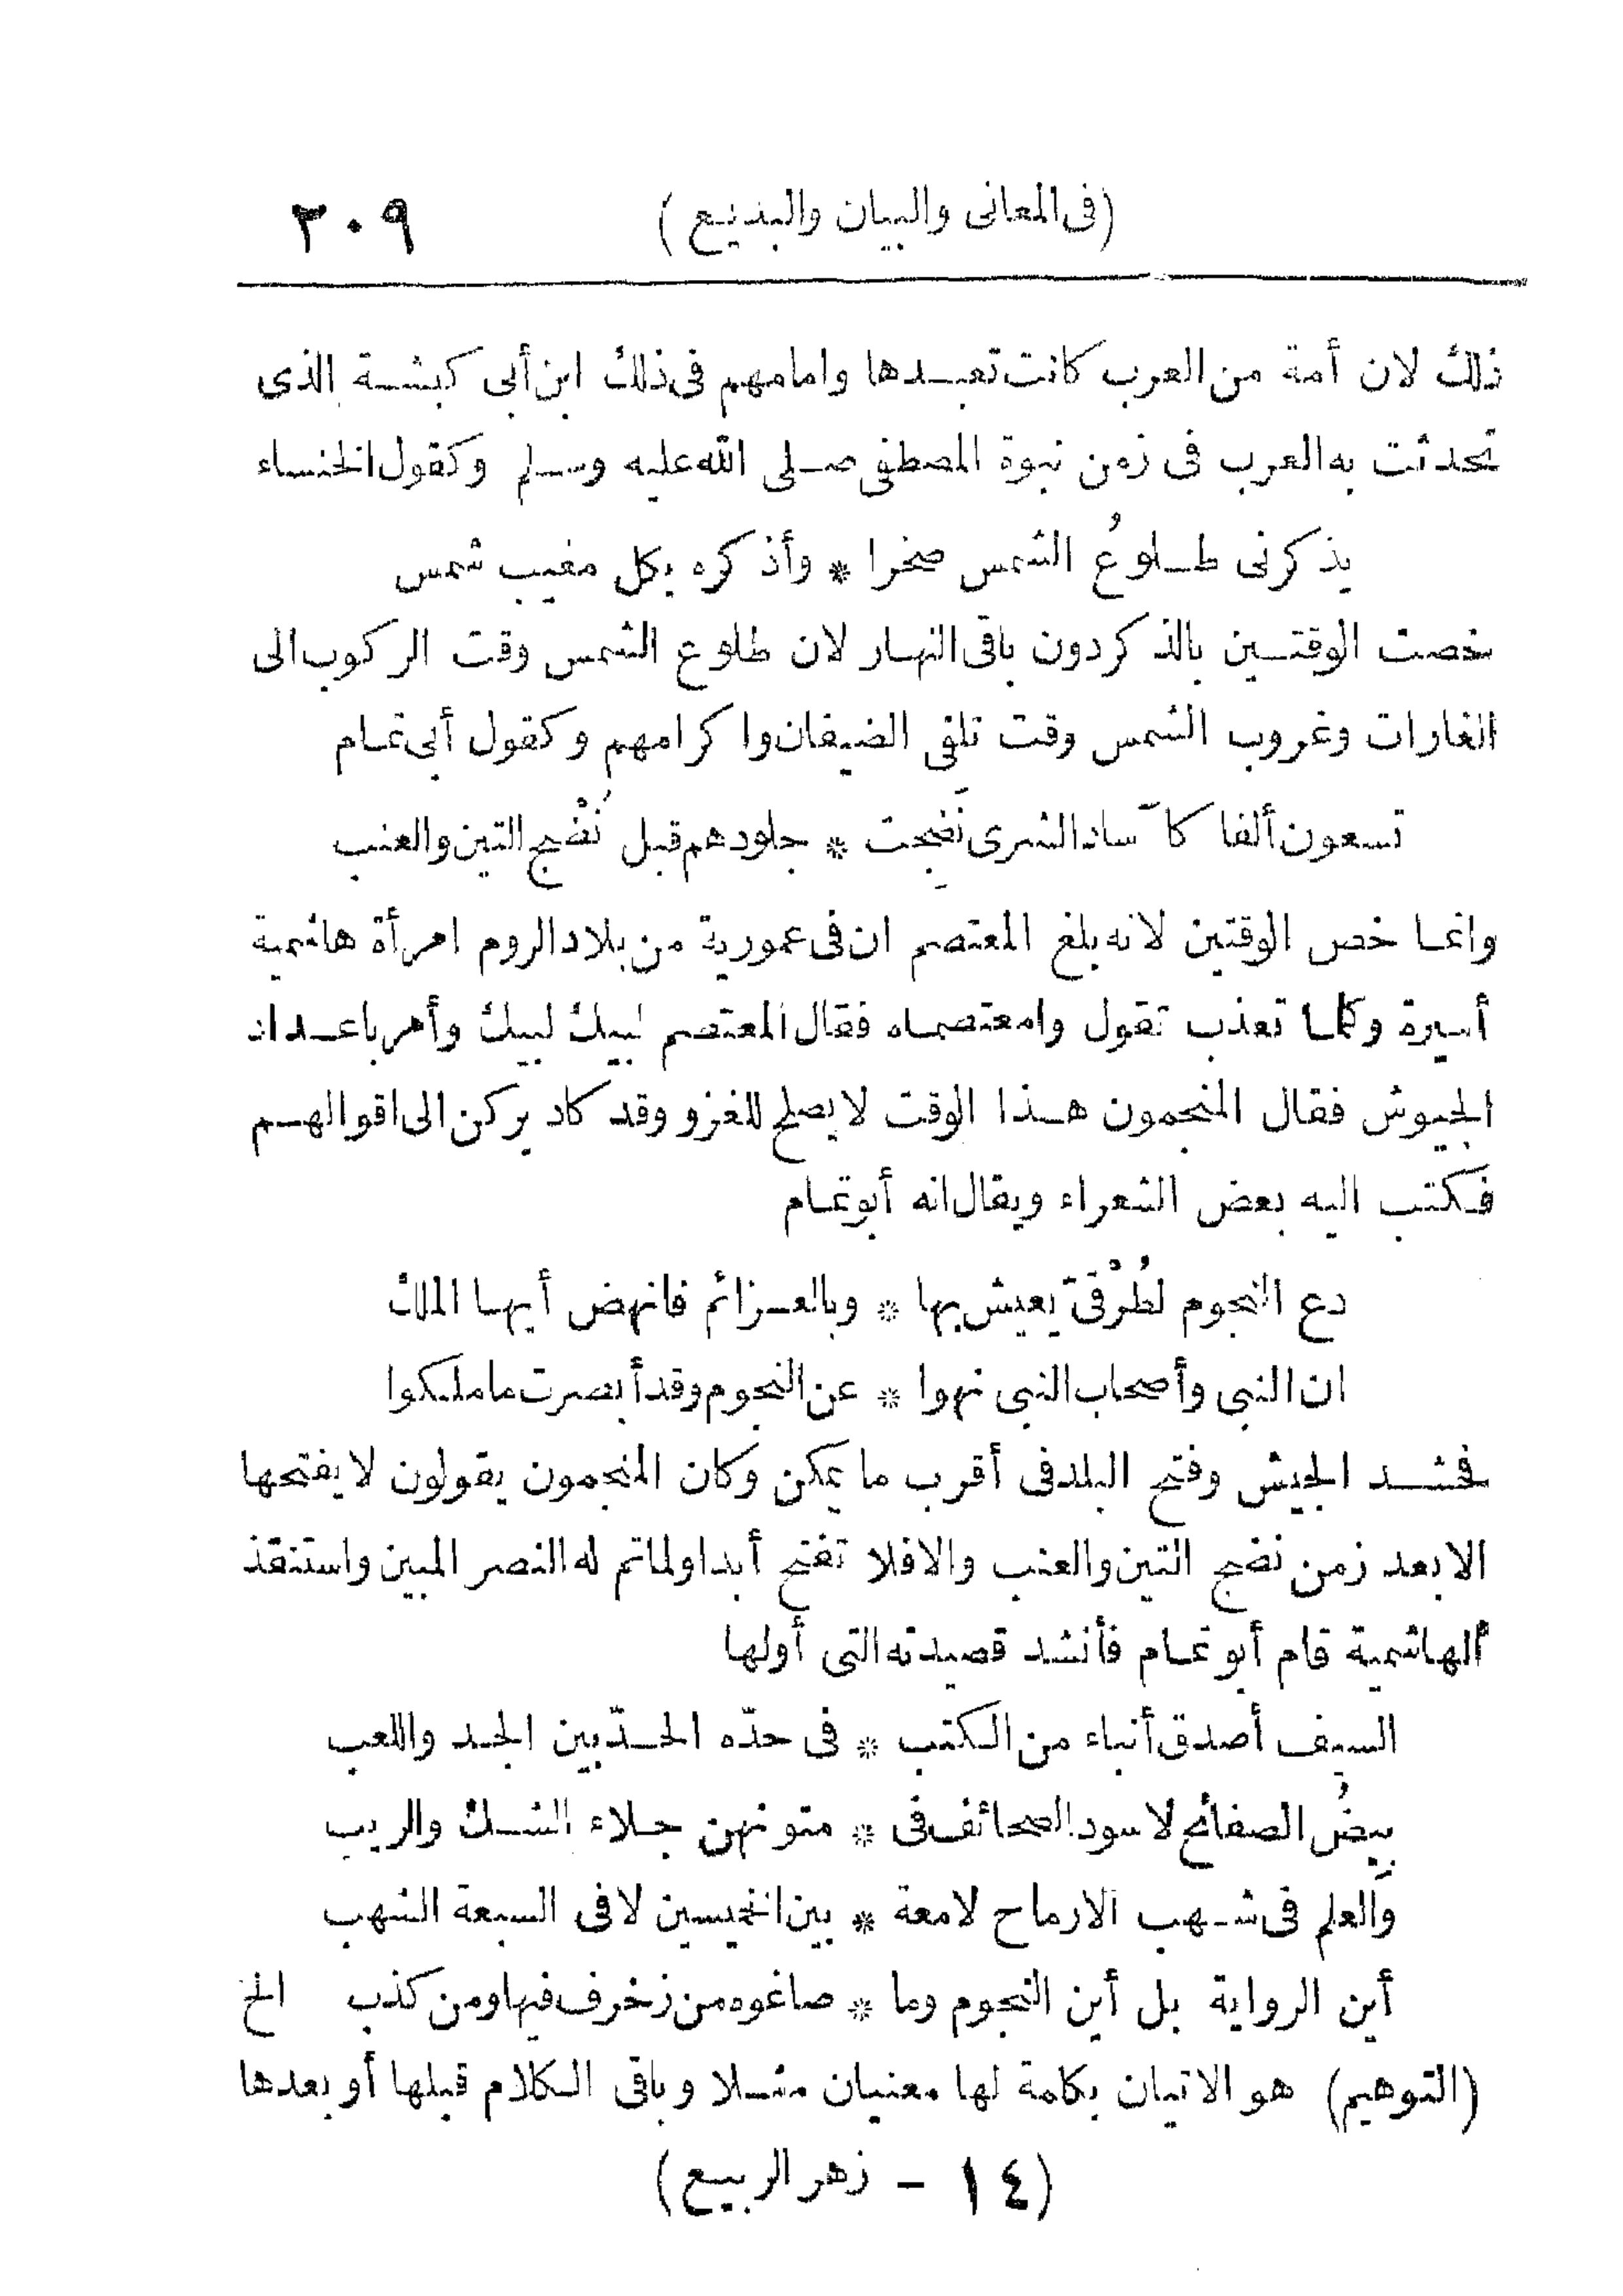 (فى المعانى والبيان والبديع) ٢٠٩
ذلك لان أمة من العرب كانت تعبدها وامامهم فى ذلك ابن أبى كبشة الذى
تحدثت به العرب فى زمن نبوة المصطفى صلى الله عليه وسلم وكقول الخنساء
يذكرنى طلوعُ الشمس صخرا * وأذكره بكل مغيب شمس
خصت الوقتين بالذكر دون باقى النهار لان طلوع الشمس وقت الركوب الى
الغارات وغروب الشمس وقت تلقى الضيفان واكرامهم وكقول أبى تمام
تسعون ألفا كآساد الشرى نَضِجت * جلودهم قبل نُضْج التين والعنب
وانما خص الوقتين لانه بلغ المعتصم ان فى عمورية من بلاد الروم امرأة هاشمية
أسيرة وكلما تعذب تقول وامعتصماه فقال المعتصم لبيك لبيك وأمر باعداد
الجيوش فقال المنجمون هذا الوقت لا يصلح للغزو وقد كاد يركن الى اقوالهم
فكتب اليه بعض الشعراء ويقال انه أبو تمام
دع النجوم لطُرْقىّ يعيش بها * وبالعزائم فانهض أيها الملك
ان النبى وأصحاب النبى نهوا * عن النجوم وقد أبصرت ما ملكوا
فحشد الجيش وفتح البلد فى أقرب ما يمكن وكان المنجمون يقولون لا يفتحها
الا بعد زمن نضج التين والعنب والا فلا تفتح أبدا ولما تم له النصر المبين واستنقذ
الهاشمية قام أبو تمام فأنشد قصيدته التى أولها
السيف أصدق أنباء من الكتب * فى حدّه الحدّ بين الجد واللعب
بيضُ الصفائح لا سود الصحائف فى * متونهن جلاء الشك والريب
والعلم فى شهب الارماح لامعة * بين الخميسين لا فى السبعة الشهب
أين الرواية بل أين النجوم وما * صاغوه من زخرف فيها ومن كذب الخ
(التوهيم) هو الاتيان بكلمة لها معنيان مثلا وباقى الكلام قبلها أو بعدها
(١٤ - زهر الربيع)